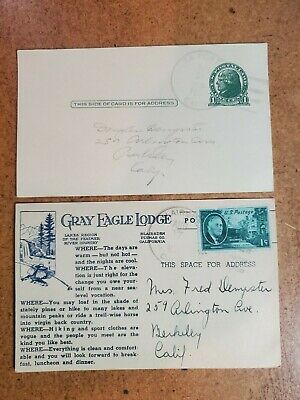 THIS SIDE OF CARD IS FOR ADDRESS
1 1
Douglas Dempster
259 Arlington Ave
Berkeley
Calif.
GRAY EAGLE LODGE
LAKES REGION
OF THE FEATHER
RIVER COUNTRY
BLAIRSDEN
PLUMAS CO.
CALIFORNIA
WHERE—The days are
warm — but not hot —
and the nights are cool.
WHERE—The eleva-
tion is just right for
the change you owe your-
self from a near sea-
level vocation.
WHERE—You may loaf in the shade of
stately pines or hike to many lakes and
mountain peaks or ride a trail-wise horse
into virgin back country.
WHERE—Hiking and sport clothes are
vogue and the people you meet are the
kind you like best.
WHERE—Everything is clean and comfort-
able and you will look forward to break-
fast, luncheon and dinner.
PO
U.S. POSTAGE
1¢
THIS SPACE FOR ADDRESS
Mrs. Fred Dempster
259 Arlington Ave.
Berkeley
Calif.